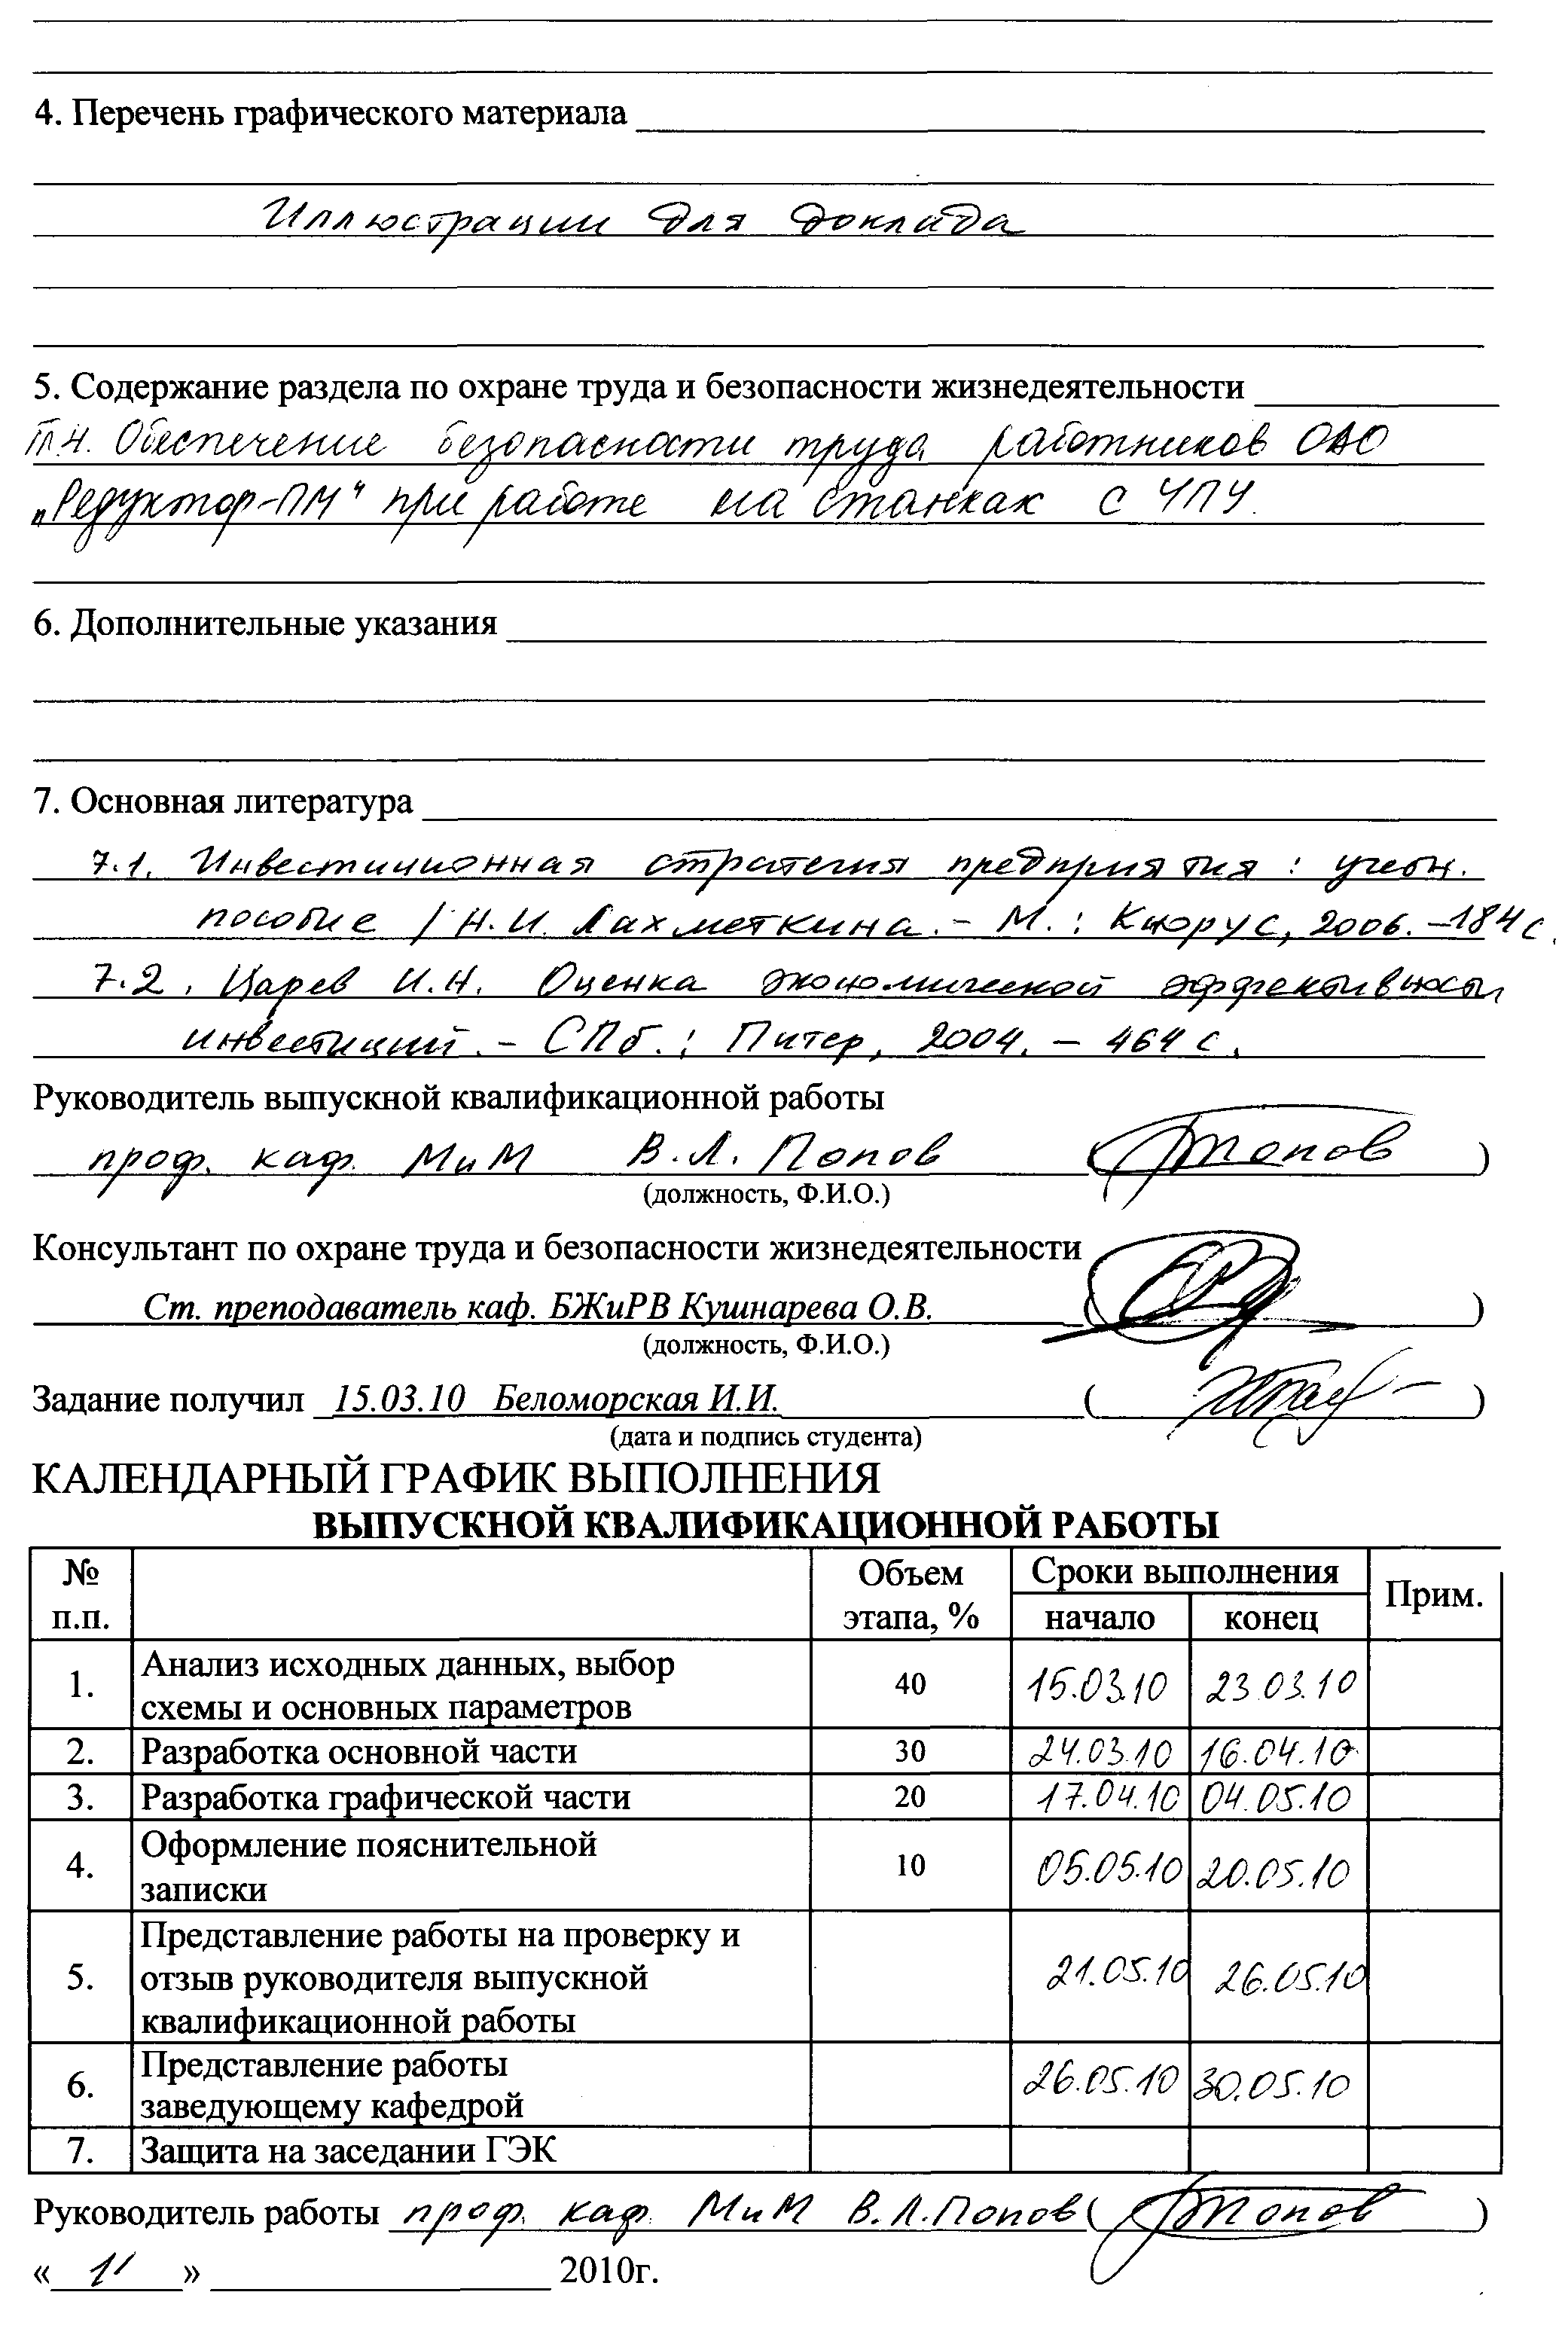 4. Перечень графического материала
Иллюстрации для доклада
5. Содержание раздела по охране труда и безопасности жизнедеятельности
Обеспечение безопасности труда работников ОАО
„Редуктор-ПМ" при работе на станках с ЧПУ.
6. Дополнительные указания
7. Основная литература
7.1. Инвестиционная стратегия предприятия : учебн.
пособие / Н.И. Лахметкина. – М. : Кнорус, 2006. – 184 с.
7.2. Царев И.Н. Оценка экономической эффективности
инвестиций. – СПб. : Питер, 2004. – 464 с.
Руководитель выпускной квалификационной работы
проф. каф. МиМ В.Л. Попов (Попов)
(должность, Ф.И.О.)
Консультант по охране труда и безопасности жизнедеятельности
Ст. преподаватель каф. БЖиРВ Кушнарева О.В. ( )
(должность, Ф.И.О.)
Задание получил 15.03.10 Беломорская И.И. ( )
(дата и подпись студента)
КАЛЕНДАРНЫЙ ГРАФИК ВЫПОЛНЕНИЯ
ВЫПУСКНОЙ КВАЛИФИКАЦИОННОЙ РАБОТЫ
№ п.п. Объем этапа, % Сроки выполнения Прим.
начало конец
1. Анализ исходных данных, выбор
схемы и основных параметров 40 15.03.10 23.03.10
2. Разработка основной части 30 24.03.10 16.04.10
3. Разработка графической части 20 17.04.10 04.05.10
4. Оформление пояснительной
записки 10 05.05.10 20.05.10
5. Представление работы на проверку и
отзыв руководителя выпускной
квалификационной работы 21.05.10 26.05.10
6. Представление работы
заведующему кафедрой 26.05.10 30.05.10
7. Защита на заседании ГЭК
Руководитель работы проф. каф. МиМ В.Л. Попов (Попов)
« » 2010г.